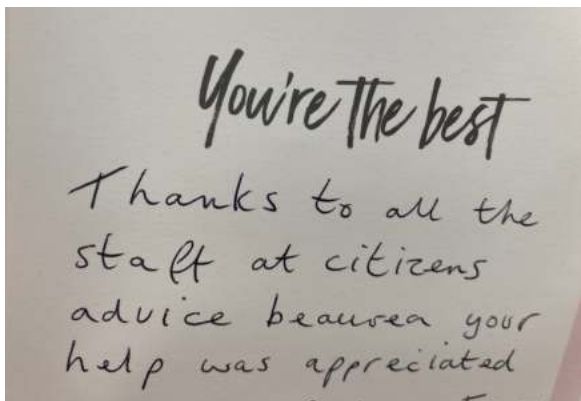 You're the best
Thanks to all the
staff at citizens
advice beausea your
help was appreciated